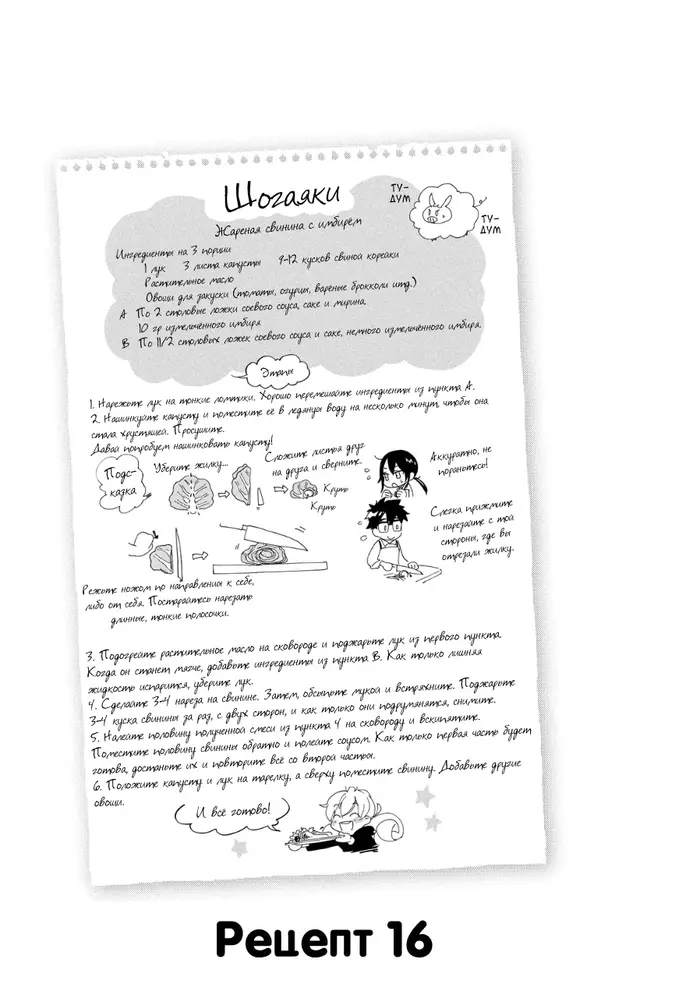 Шогаяки
ТУ-
ДУМ
ТУ-
ДУМ
Жареная свинина с имбирём
Ингредиенты на 3 порции
1 лук 3 листа капусты 9-12 кусков свиной корейки
Растительное масло
Овощи для закуски (томаты, огурцы, вареные брокколи итд.)
А По 2 столовые ложки соевого соуса, саке и мирина,
10 гр измельчённого имбиря
В По 11/2 столовых ложек соевого соуса и саке, немного измельчённого имбиря.
Этапы
1. Нарежьте лук на тонкие ломтики. Хорошо перемешайте ингредиенты из пункта А.
2. Нашинкуйте капусту и поместите её в ледяную воду на несколько минут, чтобы она
стала хрустящей. Просушите.
Давай попробуем нашинковать капусту!
Подс-
казка
Уберите жилку...
Сложите листья друг
на друга и сверните.
Круть
Круть
Аккуратно, не
пораньтесь!
Слегка прижмите
и нарезайте с той
стороны, где вы
отрезали жилку.
Режьте ножом по направлению к себе,
либо от себя. Постарайтесь нарезать
длинные, тонкие полосочки.
3. Подогрейте растительное масло на сковороде и поджарьте лук из первого пункта.
Когда он станет мягче, добавьте ингредиенты из пункта В. Как только лишняя
жидкость испарится, уберите лук.
4. Сделайте 3-4 нареза на свинине. Затем, обсыпьте мукой и встряхните. Поджарьте
3-4 куска свинины за раз, с двух сторон, и как только они подрумянятся, снимите.
5. Налейте половину полученной смеси из пункта 4 на сковороду и вскипятите.
Поместите половину свинины обратно и полейте соусом. Как только первая часть будет
готова, достаньте их и повторите всё со второй частью.
6. Положите капусту и лук на тарелку, а сверху поместите свинину. Добавьте другие
овощи.
И всё готово!
Рецепт 16